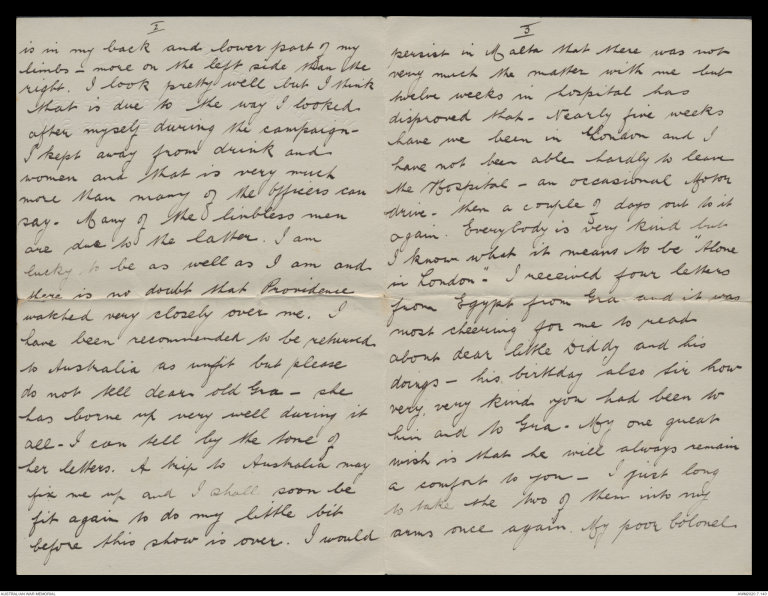 2
is in my back and lower part of my
limbs – more on the left side than the
right. I look pretty well but I think
that is due to the way I looked
after myself during the campaign –
I kept away from drink and
women and that is very much
more than many of the officers can
say. Many of the limbless men
are due to the latter. I am
lucky to be as well as I am and
there is no doubt that Providence
watched very closely over me. I
have been recommended to be returned
to Australia as unfit but please
do not tell dear old Gra – she
has borne up very well during it
all – I can tell by the tone of
her letters. A trip to Australia may
fix me up and I shall soon be
fit again to do my little bit
before this show is over. I would
3
persist in Malta that there was not
very much the matter with me but
twelve weeks in hospital has
disproved that – Nearly five weeks
have we been in London and I
have not been able hardly to leave
the Hospital – an occasional Motor
drive – then a couple of days out to it
again. Everybody is very kind but
I know what it means to be "Alone
in London". I received four letters
from Egypt from Gra and it was
most cheering for me to read
about dear little Diddy and his
doings – his birthday also Sir how
very, very kind you had been to
him and to Gra – My one great
wish is that he will always remain
a comfort to you – I just long
to take the two of them into my
arms once again. My poor Colonel
AUSTRALIAN WAR MEMORIAL